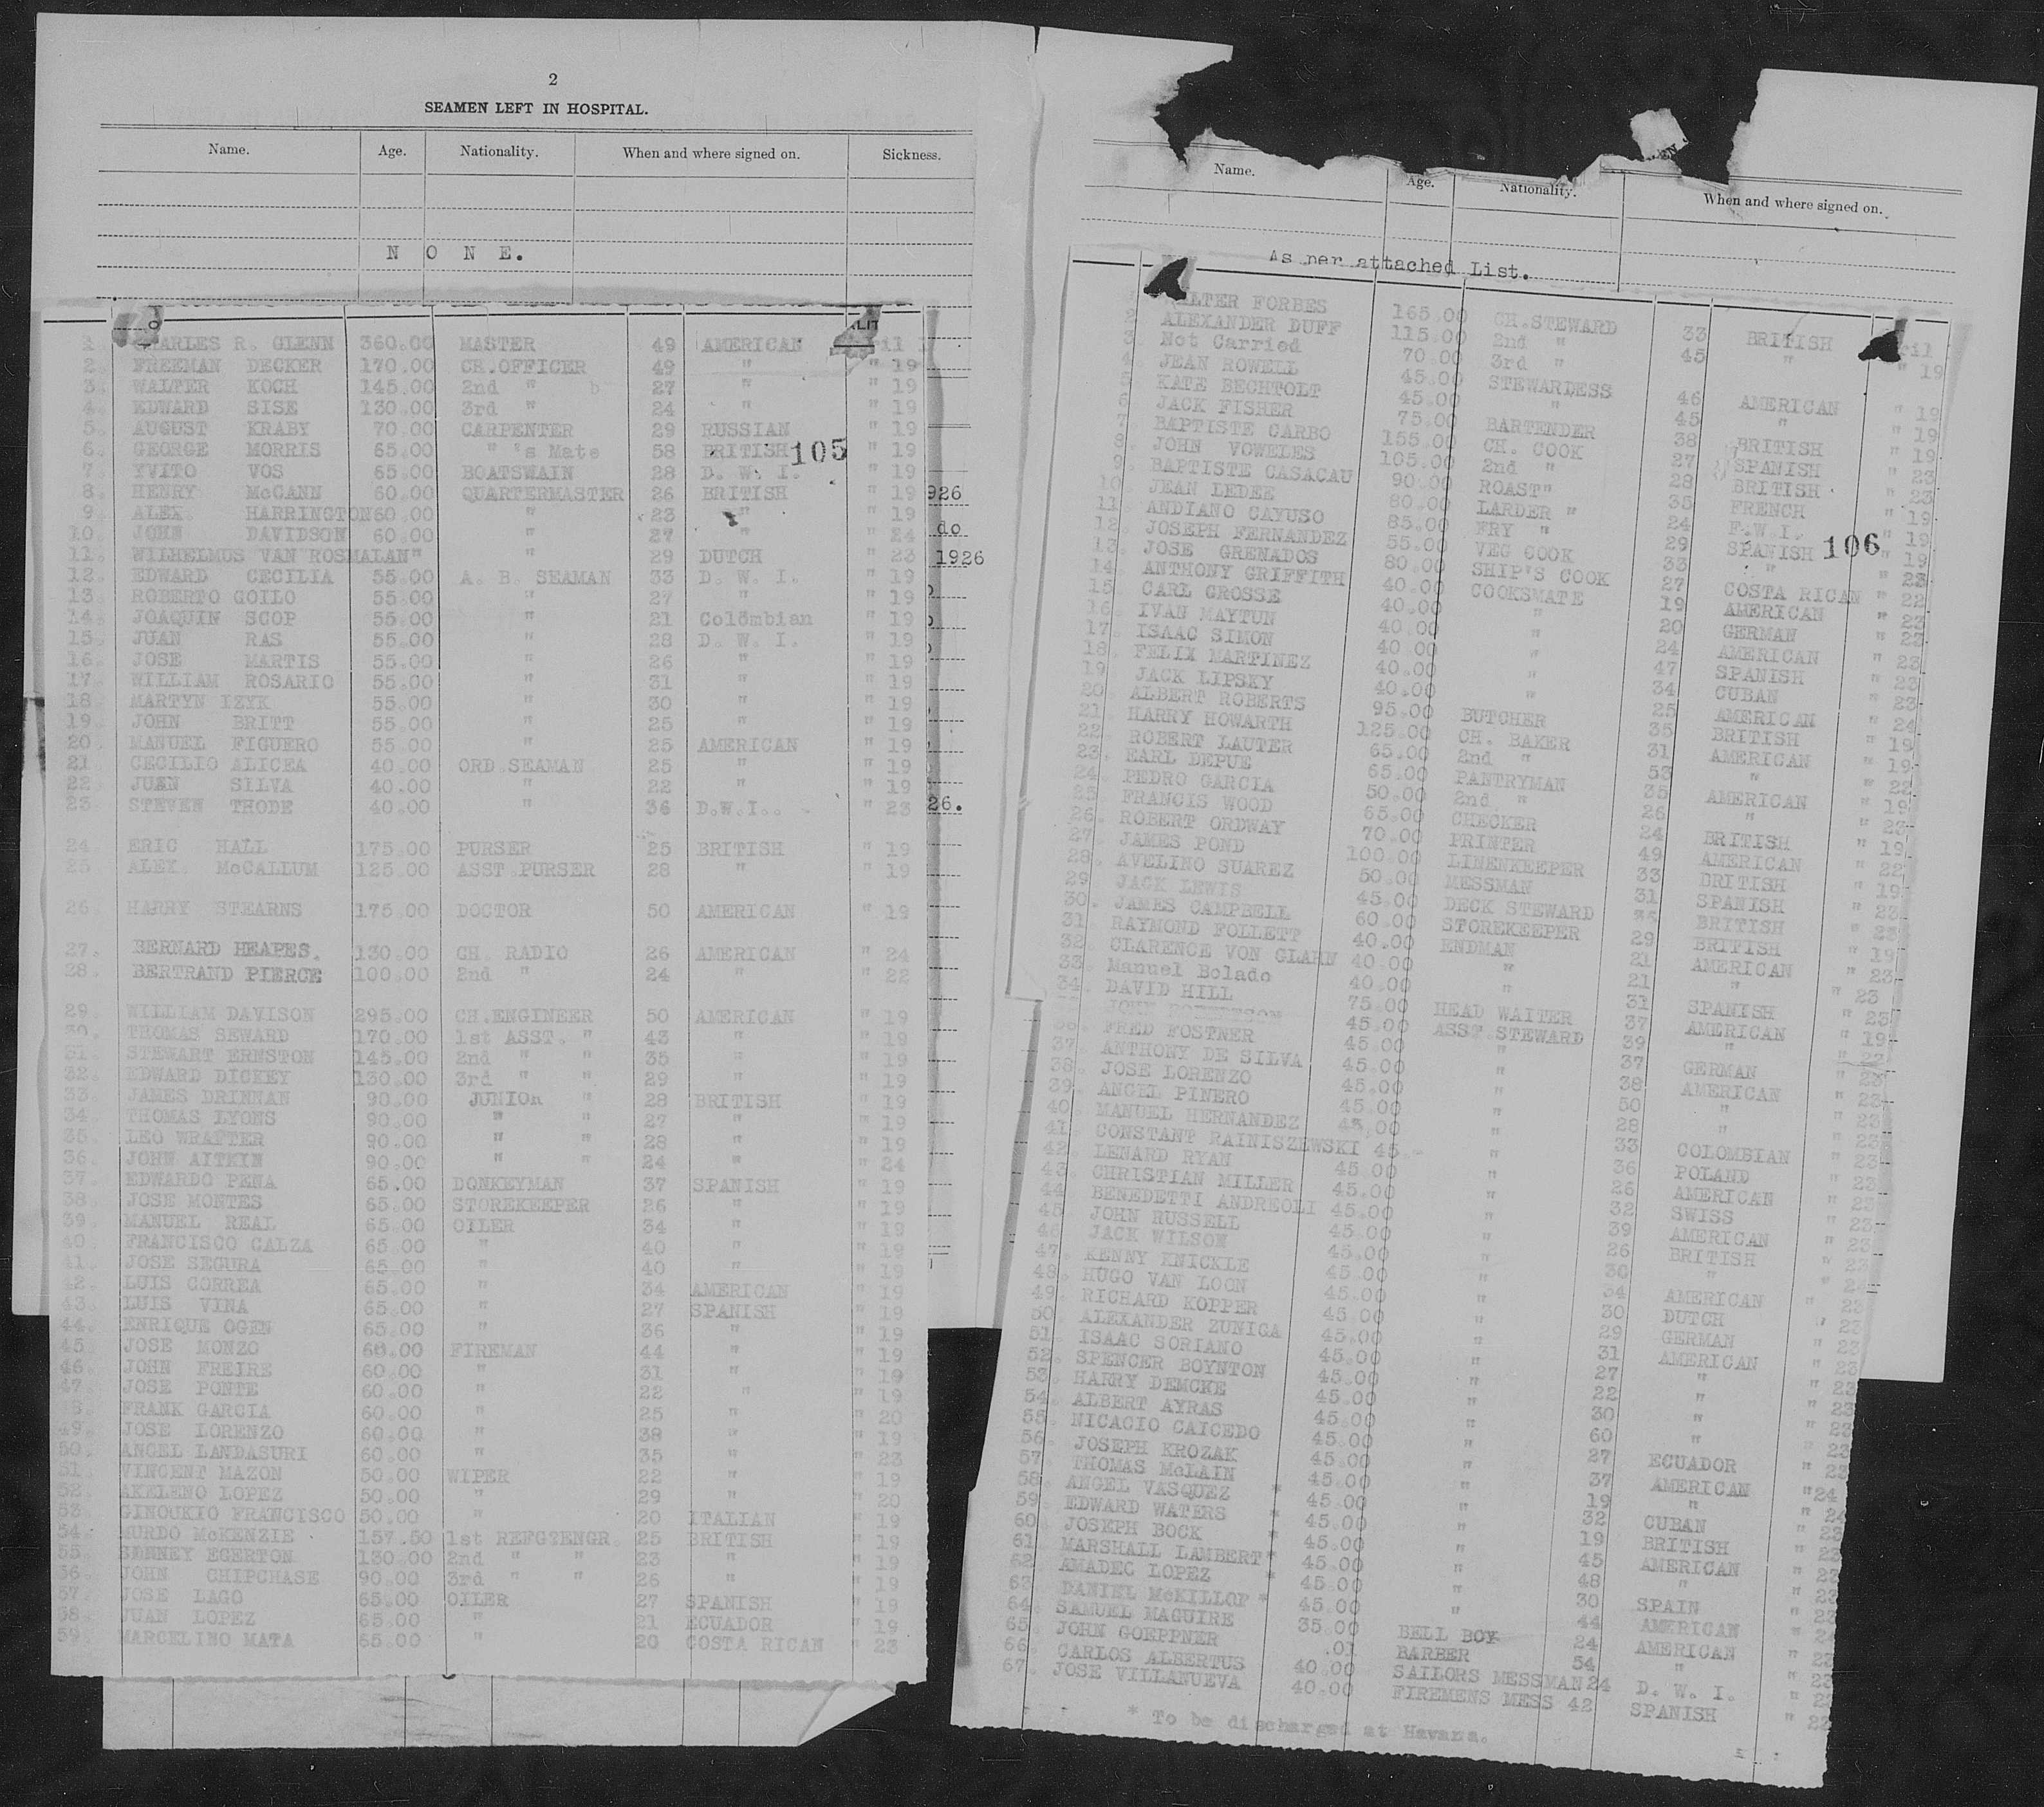 2
SEAMEN LEFT IN HOSPITAL.
Name. Age. Nationality. When and where signed on. Sickness.
N O N E.
1 CHARLES R. GLENN 360.00 MASTER 49 AMERICAN
2. FREEMAN DECKER 170.00 CH.OFFICER 49 " " 19
3. WALTER KOCH 145.00 2nd " 27 " " 19
4. EDWARD SISE 130.00 3rd " 24 " " 19
5. AUGUST KRABY 70.00 CARPENTER 29 RUSSIAN " 19
6. GEORGE MORRIS 65.00 " 's Mate 58 BRITISH 105 " 19
7. YVITO VOS 65.00 BOATSWAIN 28 D. W. I. " 19
8. HENRY McCANN 60.00 QUARTERMASTER 26 BRITISH " 19 926
9. ALEX. HARRINGTON 60.00 " 23 " " 19
10. JOHN DAVIDSON 60.00 " 27 " " 24 do
11. WILHELMUS VAN ROSMALAN " " 29 DUTCH " 23 1926
12. EDWARD CECILIA 55.00 A. B. SEAMAN 33 D. W. I. " 19
13. ROBERTO GOILO 55.00 " 27 " " 19
14. JOAQUIN SCOP 55.00 " 21 Colombian " 19
15. JUAN RAS 55.00 " 28 D. W. I. " 19
16. JOSE MARTIS 55.00 " 26 " " 19
17. WILLIAM ROSARIO 55.00 " 31 " " 19
18. MARTYN IZYK 55.00 " 30 " " 19
19. JOHN BRITT 55.00 " 25 " " 19
20. MANUEL FIGUERO 55.00 " 25 AMERICAN " 19
21 CECILIO ALICEA 40.00 ORD.SEAMAN 25 " " 19
22. JUAN SILVA 40.00 " 22 " " 19
23. STEVEN THODE 40.00 " 36 D.W.I.. " 23 26.
24. ERIC HALL 175.00 PURSER 25 BRITISH " 19
25 ALEX. McCALLUM 125.00 ASST.PURSER 28 " " 19
26. HARRY STEARNS 175.00 DOCTOR 50 AMERICAN " 19
27. BERNARD HEAPES. 130.00 CH. RADIO 26 AMERICAN " 24
28. BERTRAND PIERCE 100.00 2nd " 24 " " 22
29. WILLIAM DAVISON 295.00 CH.ENGINEER 50 AMERICAN " 19
30. THOMAS SEWARD 170.00 1st ASST. " 43 " " 19
31. STEWART ERNSTON 145.00 2nd " " 35 " " 19
32. EDWARD DICKEY 130.00 3rd " " 29 " " 19
33. JAMES DRINNAN 90.00 JUNIOR " 28 BRITISH " 19
34. THOMAS LYONS 90.00 " " 27 " " 19
35. LEO WRAFTER 90.00 " " 28 " " 19
36. JOHN AITKIN 90.00 " " 24 " " 24
37. EDWARDO PENA 65.00 DONKEYMAN 37 SPANISH " 19
38. JOSE MONTES 65.00 STOREKEEPER 26 " " 19
39. MANUEL REAL 65.00 OILER 34 " " 19
40. FRANCISCO CALZA 65.00 " 40 " " 19
41. JOSE SEGURA 65.00 " 40 " " 19
42. LUIS CORREA 65.00 " 34 AMERICAN " 19
43. LUIS VINA 65.00 " 27 SPANISH " 19
44. ENRIQUE OGEN 65.00 " 36 " " 19
45. JOSE MONZO 60.00 FIREMAN 44 " " 19
46. JOHN FREIRE 60.00 " 31 " " 19
47. JOSE PONTE 60.00 " 22 " " 19
FRANK GARCIA 60.00 " 25 " " 20
49. JOSE LORENZO 60.00 " 38 " " 19
50. ANGEL LANDASURI 60.00 " 35 " " 23
51. VINCENT MAZON 50.00 WIPER 22 " " 19
52. AKELENO LOPEZ 50.00 " 29 " " 20
53. GINOUKIO FRANCISCO 50.00 " 20 ITALIAN " 19
54. MURDO McKENZIE 157.50 1st REFG?ENGR. 25 BRITISH " 19
55. SENNEY EGERTON 130.00 2nd " " 23 " " 19
56. JOHN CHIPCHASE 90.00 3rd " " 26 " " 19
57. JOSE LAGO 65.00 OILER 27 SPANISH " 19
58. JUAN LOPEZ 65.00 " 21 ECUADOR " 19
59. MARCELINO MATA 65.00 " 20 COSTA RICAN " 23
Name. Age. Nationality. When and where signed on.
As per attached List.
WALTER FORBES 165.00 CH.STEWARD 33 BRITISH
2. ALEXANDER DUFF 115.00 2nd " 45 " " 19
3. Not Carried 70.00 3rd "
4. JEAN ROWELL 45.00 STEWARDESS 46 AMERICAN " 19
5 KATE BECHTOLT 45.00 " 45 " " 19
6 JACK FISHER 75.00 BARTENDER 38 BRITISH " 19
7 BAPTISTE CARBO 155.00 CH. COOK 27 SPANISH " 23
8. JOHN VOWELES 105.00 2nd " 28 BRITISH " 23
9. BAPTISTE CASACAU 90.00 ROAST" 35 FRENCH " 19
10. JEAN LEDEE 80.00 LARDER " 24 F.W.I. " 19
11. ANDIANO CAYUSO 85.00 FRY " 29 SPANISH 106 " 19
12. JOSEPH FERNANDEZ 55.00 VEG COOK 33 " " 23
13. JOSE GRENADOS 80.00 SHIP'S COOK 27 COSTA RICAN " 22
14. ANTHONY GRIFFITH 40.00 COOKSMATE 19 AMERICAN " 23
15 CARL GROSSE 40.00 " 20 GERMAN " 23
16. IVAN MAYTUN 40.00 " 24 AMERICAN " 23
17. ISAAC SIMON 40.00 " 47 SPANISH " 23
18. FELIX MARTINEZ 40.00 " 34 CUBAN " 23
19 JACK LIPSKY 40.00 " 25 AMERICAN " 24
20. ALBERT ROBERTS 95.00 BUTCHER 35 BRITISH " 19
21. HARRY HOWARTH 125.00 CH. BAKER 31 AMERICAN " 19
22. ROBERT LAUTER 65.00 2nd " 53 " " 22
23. EARL DEPUE 65.00 PANTRYMAN 35 AMERICAN " 19
24. PEDRO GARCIA 50.00 2nd " 26 " " 23
25 FRANCIS WOOD 65.00 CHECKER 24 BRITISH " 19
26. ROBERT ORDWAY 70.00 PRINTER 49 AMERICAN " 22
27. JAMES POND 100.00 LINENKEEPER 33 BRITISH " 19
28. AVELINO SUAREZ 50.00 MESSMAN 31 SPANISH " 23
29. JACK LEWIS 45.00 DECK STEWARD 35 BRITISH " 23
30. JAMES CAMPBELL 60.00 STOREKEEPER 29 BRITISH " 19
31 RAYMOND FOLLETT 40.00 ENDMAN 21 AMERICAN " 23
32. CLARENCE VON GLAHN 40.00 " 21 " " 23
33. Manuel Bolado 40.00 " 31 SPANISH " 23
34. DAVID HILL 75.00 HEAD WAITER 37 AMERICAN " 19
JOHN 45.00 ASST.STEWARD 39 " " 22
36. FRED FOSTNER 45.00 " 37 GERMAN " 23
37 ANTHONY DE SILVA 45.00 " 38 AMERICAN " 23
38. JOSE LORENZO 45.00 " 50 " " 23
39. ANGEL PINERO 45.00 " 28 " " 23
40. MANUEL HERNANDEZ 45.00 " 33 COLOMBIAN " 23
41. CONSTANT RAINISZEWSKI 45.- " 36 POLAND " 23
42. LENARD RYAN 45.00 " 26 AMERICAN " 23
43. CHRISTIAN MILLER 45.00 " 32 SWISS " 23
44 BENEDETTI ANDREOLI 45.00 " 39 AMERICAN " 23
45 JOHN RUSSELL 45.00 " 26 BRITISH " 23
46 JACK WILSON 45.00 " 30 " "
47. KENNY KNICKLE 45.00 " 34 AMERICAN " 23
48. HUGO VAN LOON 45.00 " 30 DUTCH " 23
49. RICHARD KOPPER 45.00 " 29 GERMAN " 23
50 ALEXANDER ZUNIGA 45.00 " 31 AMERICAN " 23
51. ISAAC SORIANO 45.00 " 27 " " 23
52. SPENCER BOYNTON 45.00 " 22 " " 23
53. HARRY DEMCKE 45.00 " 30 " " 23
54. ALBERT AYRAS 45.00 " 60 " " 23
55. NICACIO CAICEDO 45.00 " 27 ECUADOR " 23
56. JOSEPH KROZAK 45.00 " 37 AMERICAN " 24
57. THOMAS McLAIN 45.00 " 19 " " 24
58. ANGEL VASQUEZ * 45.00 " 32 CUBAN " 23
59. EDWARD WATERS 45.00 " 19 BRITISH " 23
60. JOSEPH BOCK * 45.00 " 45 AMERICAN " 23
61 MARSHALL LAMBERT * 45.00 " 48 " " 23
62 AMADEC LOPEZ * 45.00 " 30 SPAIN " 23
63 DANIEL McKILLOP * 45.00 " 44 AMERICAN " 24
64. SAMUEL MAGUIRE 35.00 BELL BOY 24 AMERICAN " 23
65. JOHN GOEPPNER .01 BARBER 54 " " 23
66. CARLOS ALBERTUS 40.00 SAILORS MESSMAN 24 D. W. I. "
67. JOSE VILLANUEVA 40.00 FIREMENS MESS 42 SPANISH " 22
* To be discharged at Havana.